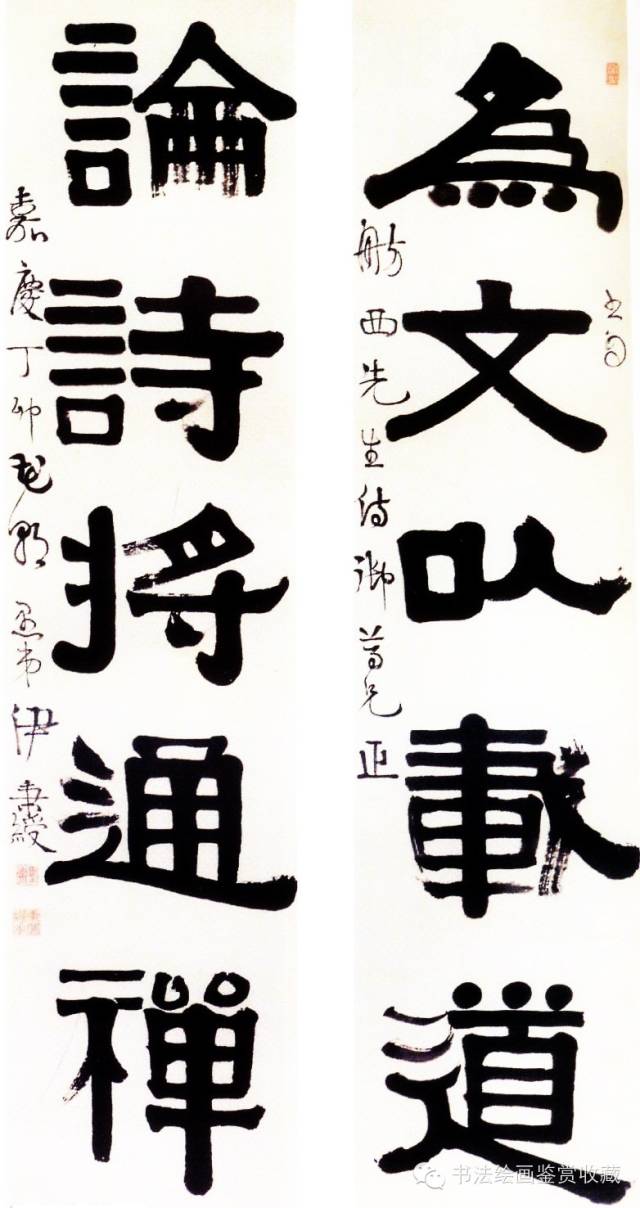 為文以載道
舫西先生侍御尊兄正
論詩將通禪
嘉慶丁卯花朝 愚弟伊秉綬
书法绘画鉴赏收藏